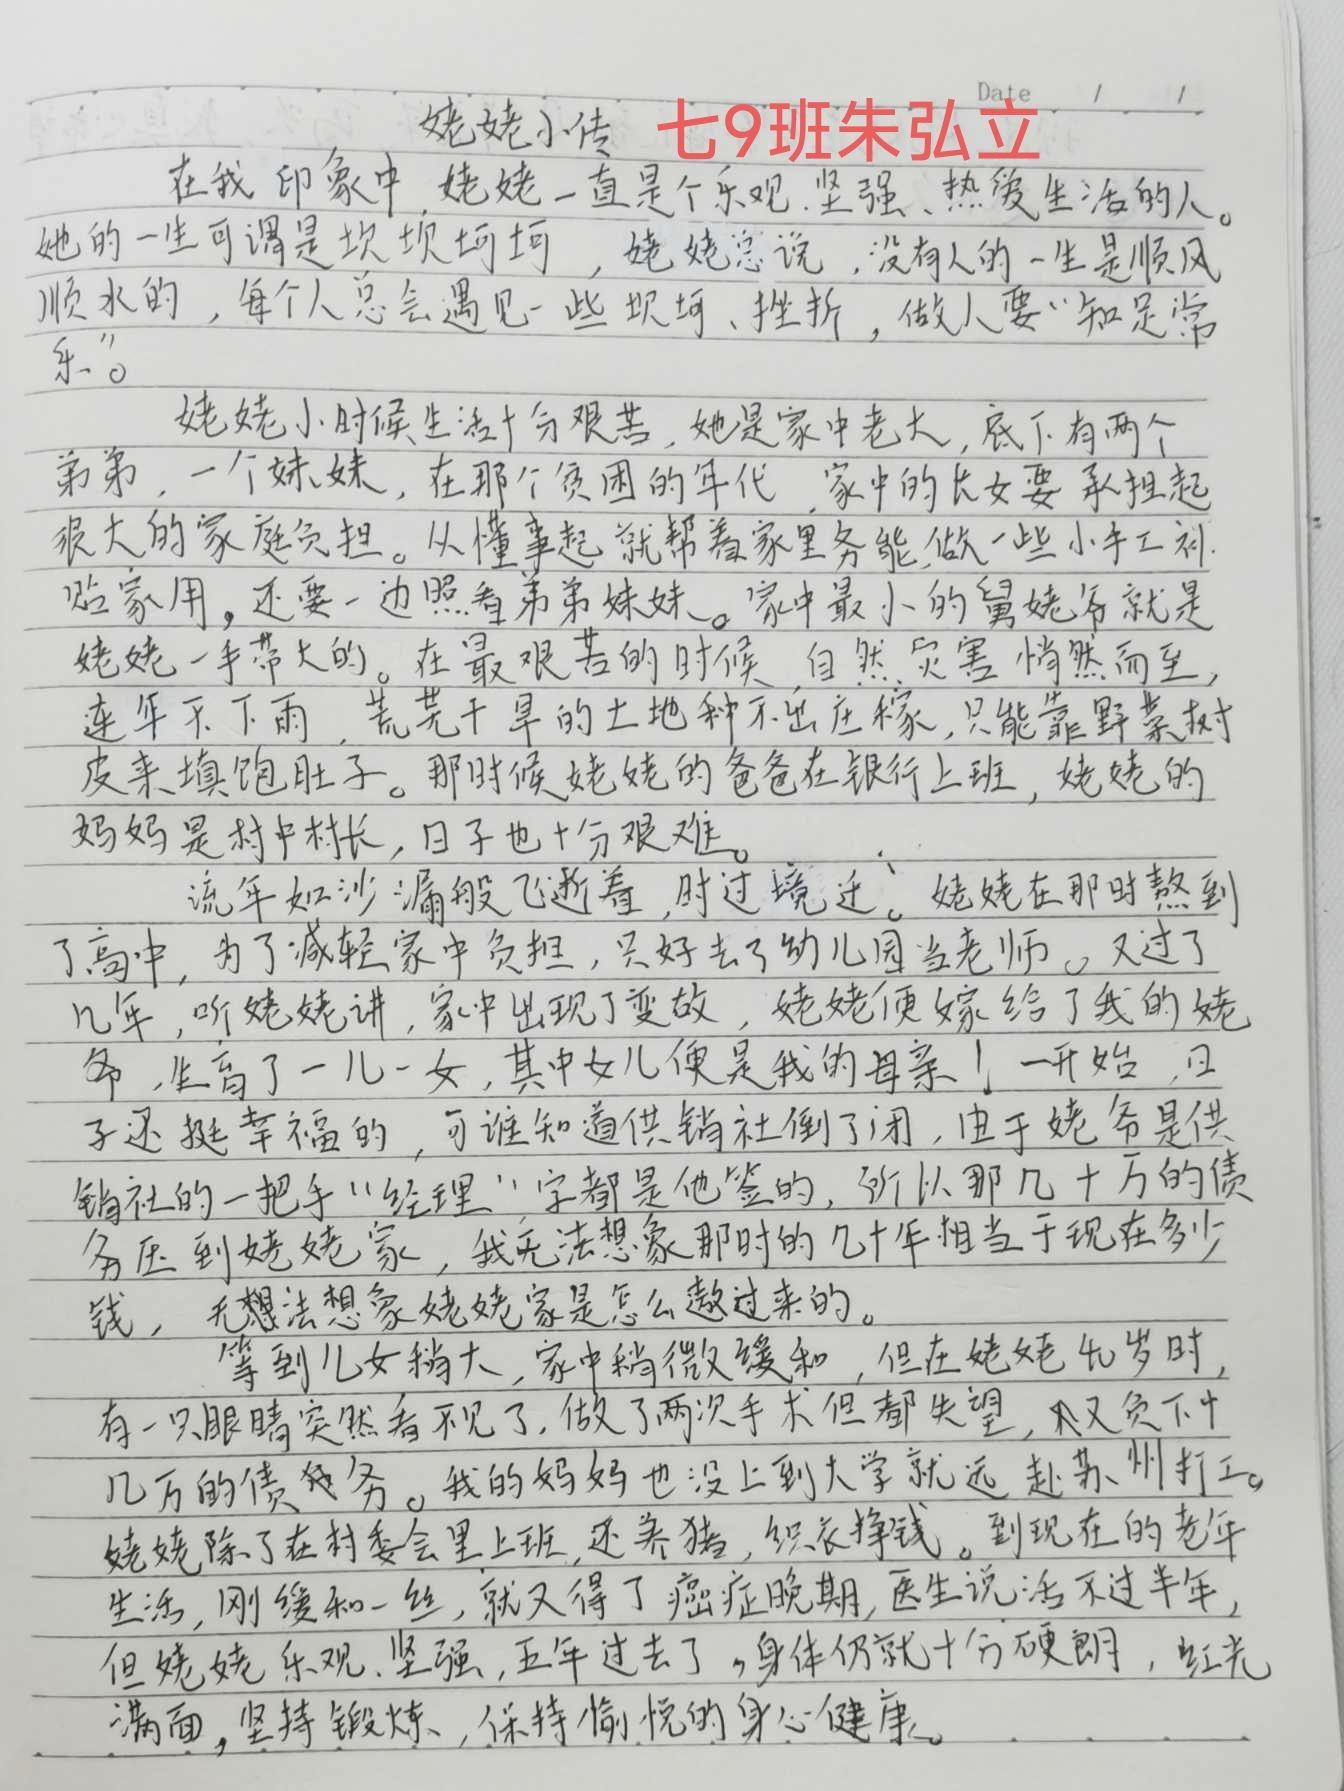 Date / /
姥姥小传 七9班朱弘立
在我印象中,姥姥一直是个乐观、坚强、热爱生活的人。
她的一生可谓是坎坎坷坷,姥姥总说,没有人的一生是顺风
顺水的,每个人总会遇见一些坎坷、挫折,做人要“知足常
乐”。
姥姥小时候生活十分艰苦,她是家中老大,底下有两个
弟弟,一个妹妹,在那个贫困的年代,家中的长女要承担起
很大的家庭负担。从懂事起就帮着家里务能,做一些小手工补
贴家用,还要一边照看弟弟妹妹。家中最小的舅姥爷就是
姥姥一手带大的。在最艰苦的时候,自然灾害悄然而至,
连年不下雨,荒芜干旱的土地种不出庄稼,只能靠野菜树
皮来填饱肚子。那时候姥姥的爸爸在银行上班,姥姥的
妈妈是村中村长,日子也十分艰难。
流年如沙漏般飞逝着,时过境迁。姥姥在那时熬到
了高中,为了减轻家中负担,只好去了幼儿园当老师。又过了
几年,听姥姥讲,家中出现了变故,姥姥便嫁给了我的姥
爷,生育了一儿一女,其中女儿便是我的母亲!一开始,日
子还挺幸福的,可谁知道供销社倒了闭,由于姥爷是供
销社的一把手“经理”,字都是他签的,所以那几十万的债
务压到姥姥家,我无法想象那时的几十年相当于现在多少
钱,无法想象姥姥家是怎么遨过来的。
等到儿女稍大,家中稍微缓和,但在姥姥40岁时,
有一只眼睛突然看不见了,做了两次手术但都失望,又负下十
几万的债务。我的妈妈也没上到大学就远赴苏州打工。
姥姥除了在村委会里上班,还养猪,织衣挣钱。到现在的老年
生活,刚缓和一丝,就又得了癌症晚期,医生说活不过半年,
但姥姥乐观、坚强,五年过去了,身体仍就十分硬朗,红光
满面,坚持锻炼,保持愉悦的身心健康。